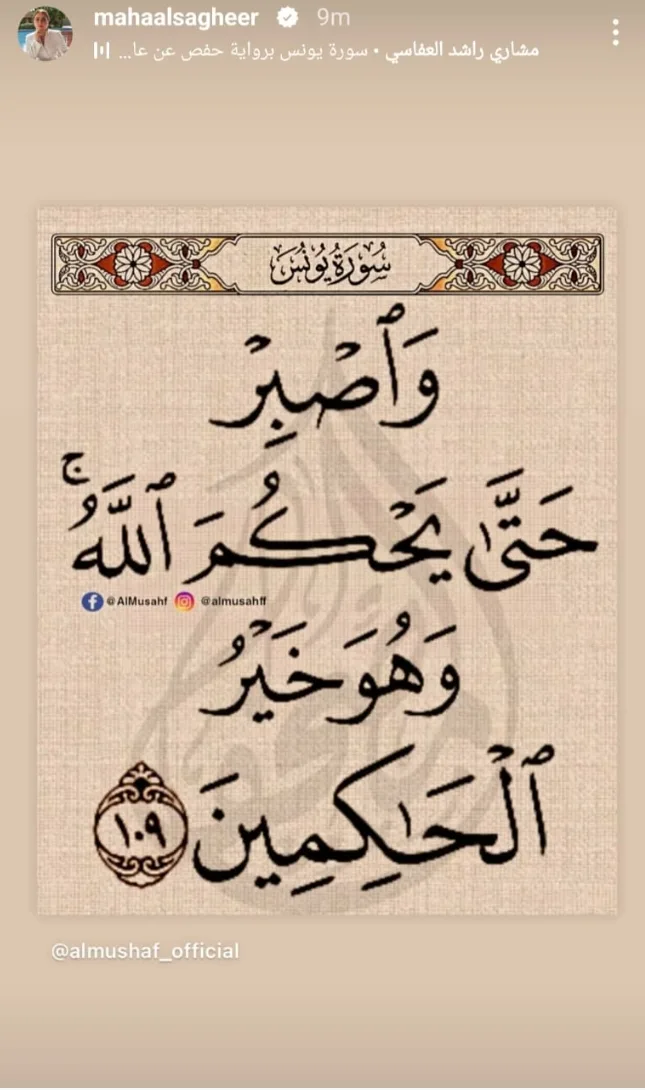 mahaalsagheer 9m
مشاري راشد العفاسي • سورة يونس برواية حفص عن عا...
سُورَةُ يُونُسَ
وَٱصْبِرْ
حَتَّىٰ يَحْكُمَ ٱللَّهُ ۚ
@AlMusahf @almusahff
وَهُوَ خَيْرُ
ٱلْحَـٰكِمِينَ ١٠٩
@almushaf_official